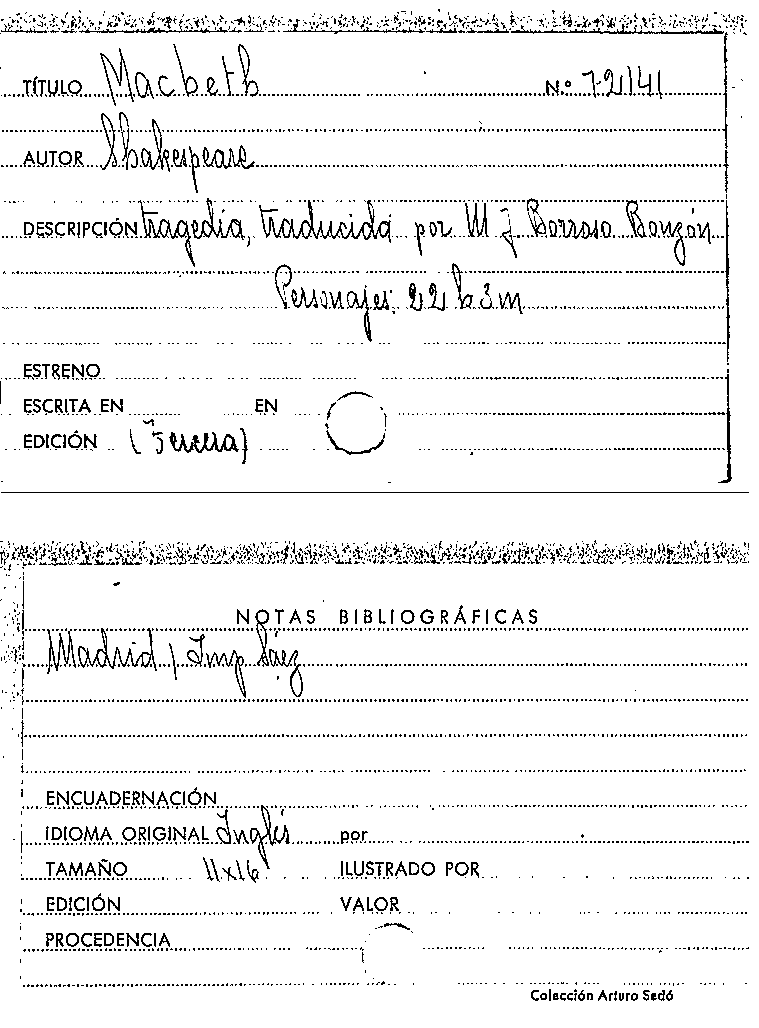 TÍTULO Macbeth N.º 7-2141
AUTOR Shakespeare
DESCRIPCIÓN tragedia, traducida por M J Borroso Bonzón
Personajes: 22 h 3 m
ESTRENO
ESCRITA EN EN
EDICIÓN (Tercera)
NOTAS BIBLIOGRÁFICAS
Madrid / Imp Sáez
ENCUADERNACIÓN
IDIOMA ORIGINAL Inglés por
TAMAÑO 11x16 ILUSTRADO POR
EDICIÓN VALOR
PROCEDENCIA
Colección Arturo Sedó